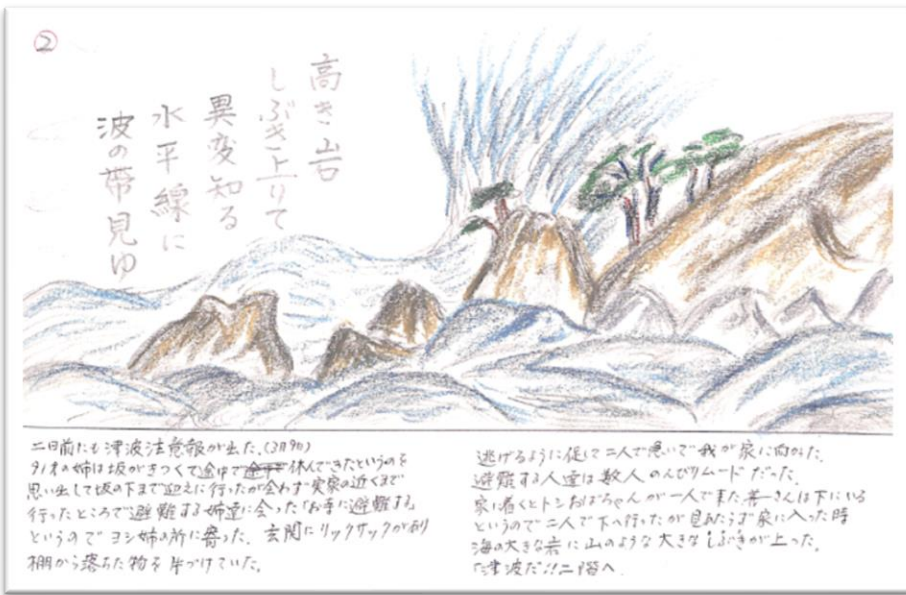 ②
高き岩
しぶき上りて
異変知る
水平線に
波の帯見ゆ
二日前にも津波注意報が出た。(3月9日)
タノオの姉は坂がきつくて途中で休んできたというのを
思い出して坂の下まで迎えに行ったが会わず実家の近くまで
行ったところで避難する姉達に会った「お寺に避難する」
というのでヨシ姉の所に寄った。玄関にリックサックが有り
棚から落ちた物を片づけていた。
逃げるように促して二人で急いで我が家に向かった。
避難する人達は数人のんびりムードだった。
家に着くとトシおばちゃんが一人で来た善一さんは下にいる
というので二人で下へ行ったが見あたらず家に入った時
海の大きな岩に山のような大きなしぶきが上った。
「津波だ!!二階へ